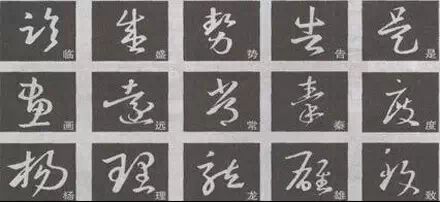 临 盛 势 告 是
画 远 常 秦 度
杨 理 龙 雄 致